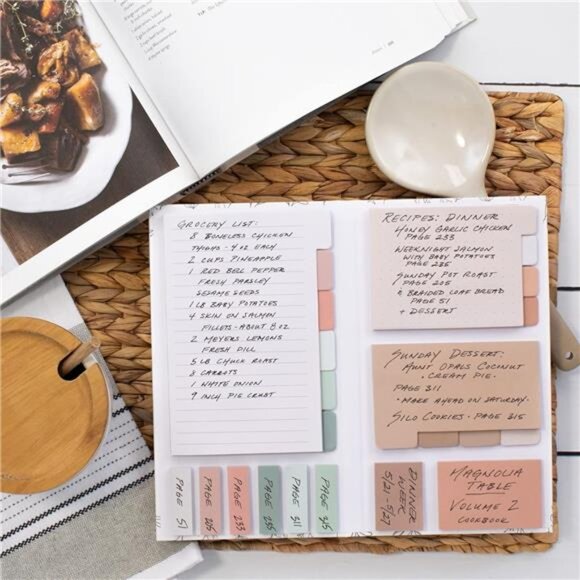 GROCERY LIST:
8 BONELESS CHICKEN
THIGHS - 4 OZ EACH
2 CUPS PINEAPPLE
1 RED BELL PEPPER
FRESH PARSLEY
SESAME SEEDS
1 LB BABY POTATOES
4 SKIN ON SALMON
FILLETS - ABOUT 8 OZ
2 MEYERS LEMONS
FRESH DILL
5 LB CHUCK ROAST
8 CARROTS
1 WHITE ONION
9 INCH PIE CRUST
RECIPES: DINNER
HONEY GARLIC CHICKEN
PAGE 233
WEEKNIGHT SALMON
WITH BABY POTATOES
PAGE 235
SUNDAY POT ROAST
PAGE 205
& BRAIDED LOAF BREAD
PAGE 51
+ DESSERT
SUNDAY DESSERT:
AUNT OPALS COCONUT
· CREAM PIE ·
PAGE 311
· MAKE AHEAD ON SATURDAY ·
SILO COOKIES · PAGE 315
PAGE 51
PAGE 205
PAGE 233
PAGE 235
PAGE 311
PAGE 315
DINNER
WEEK
5/21 - 5/27
MAGNOLIA
TABLE
VOLUME 2
COOKBOOK